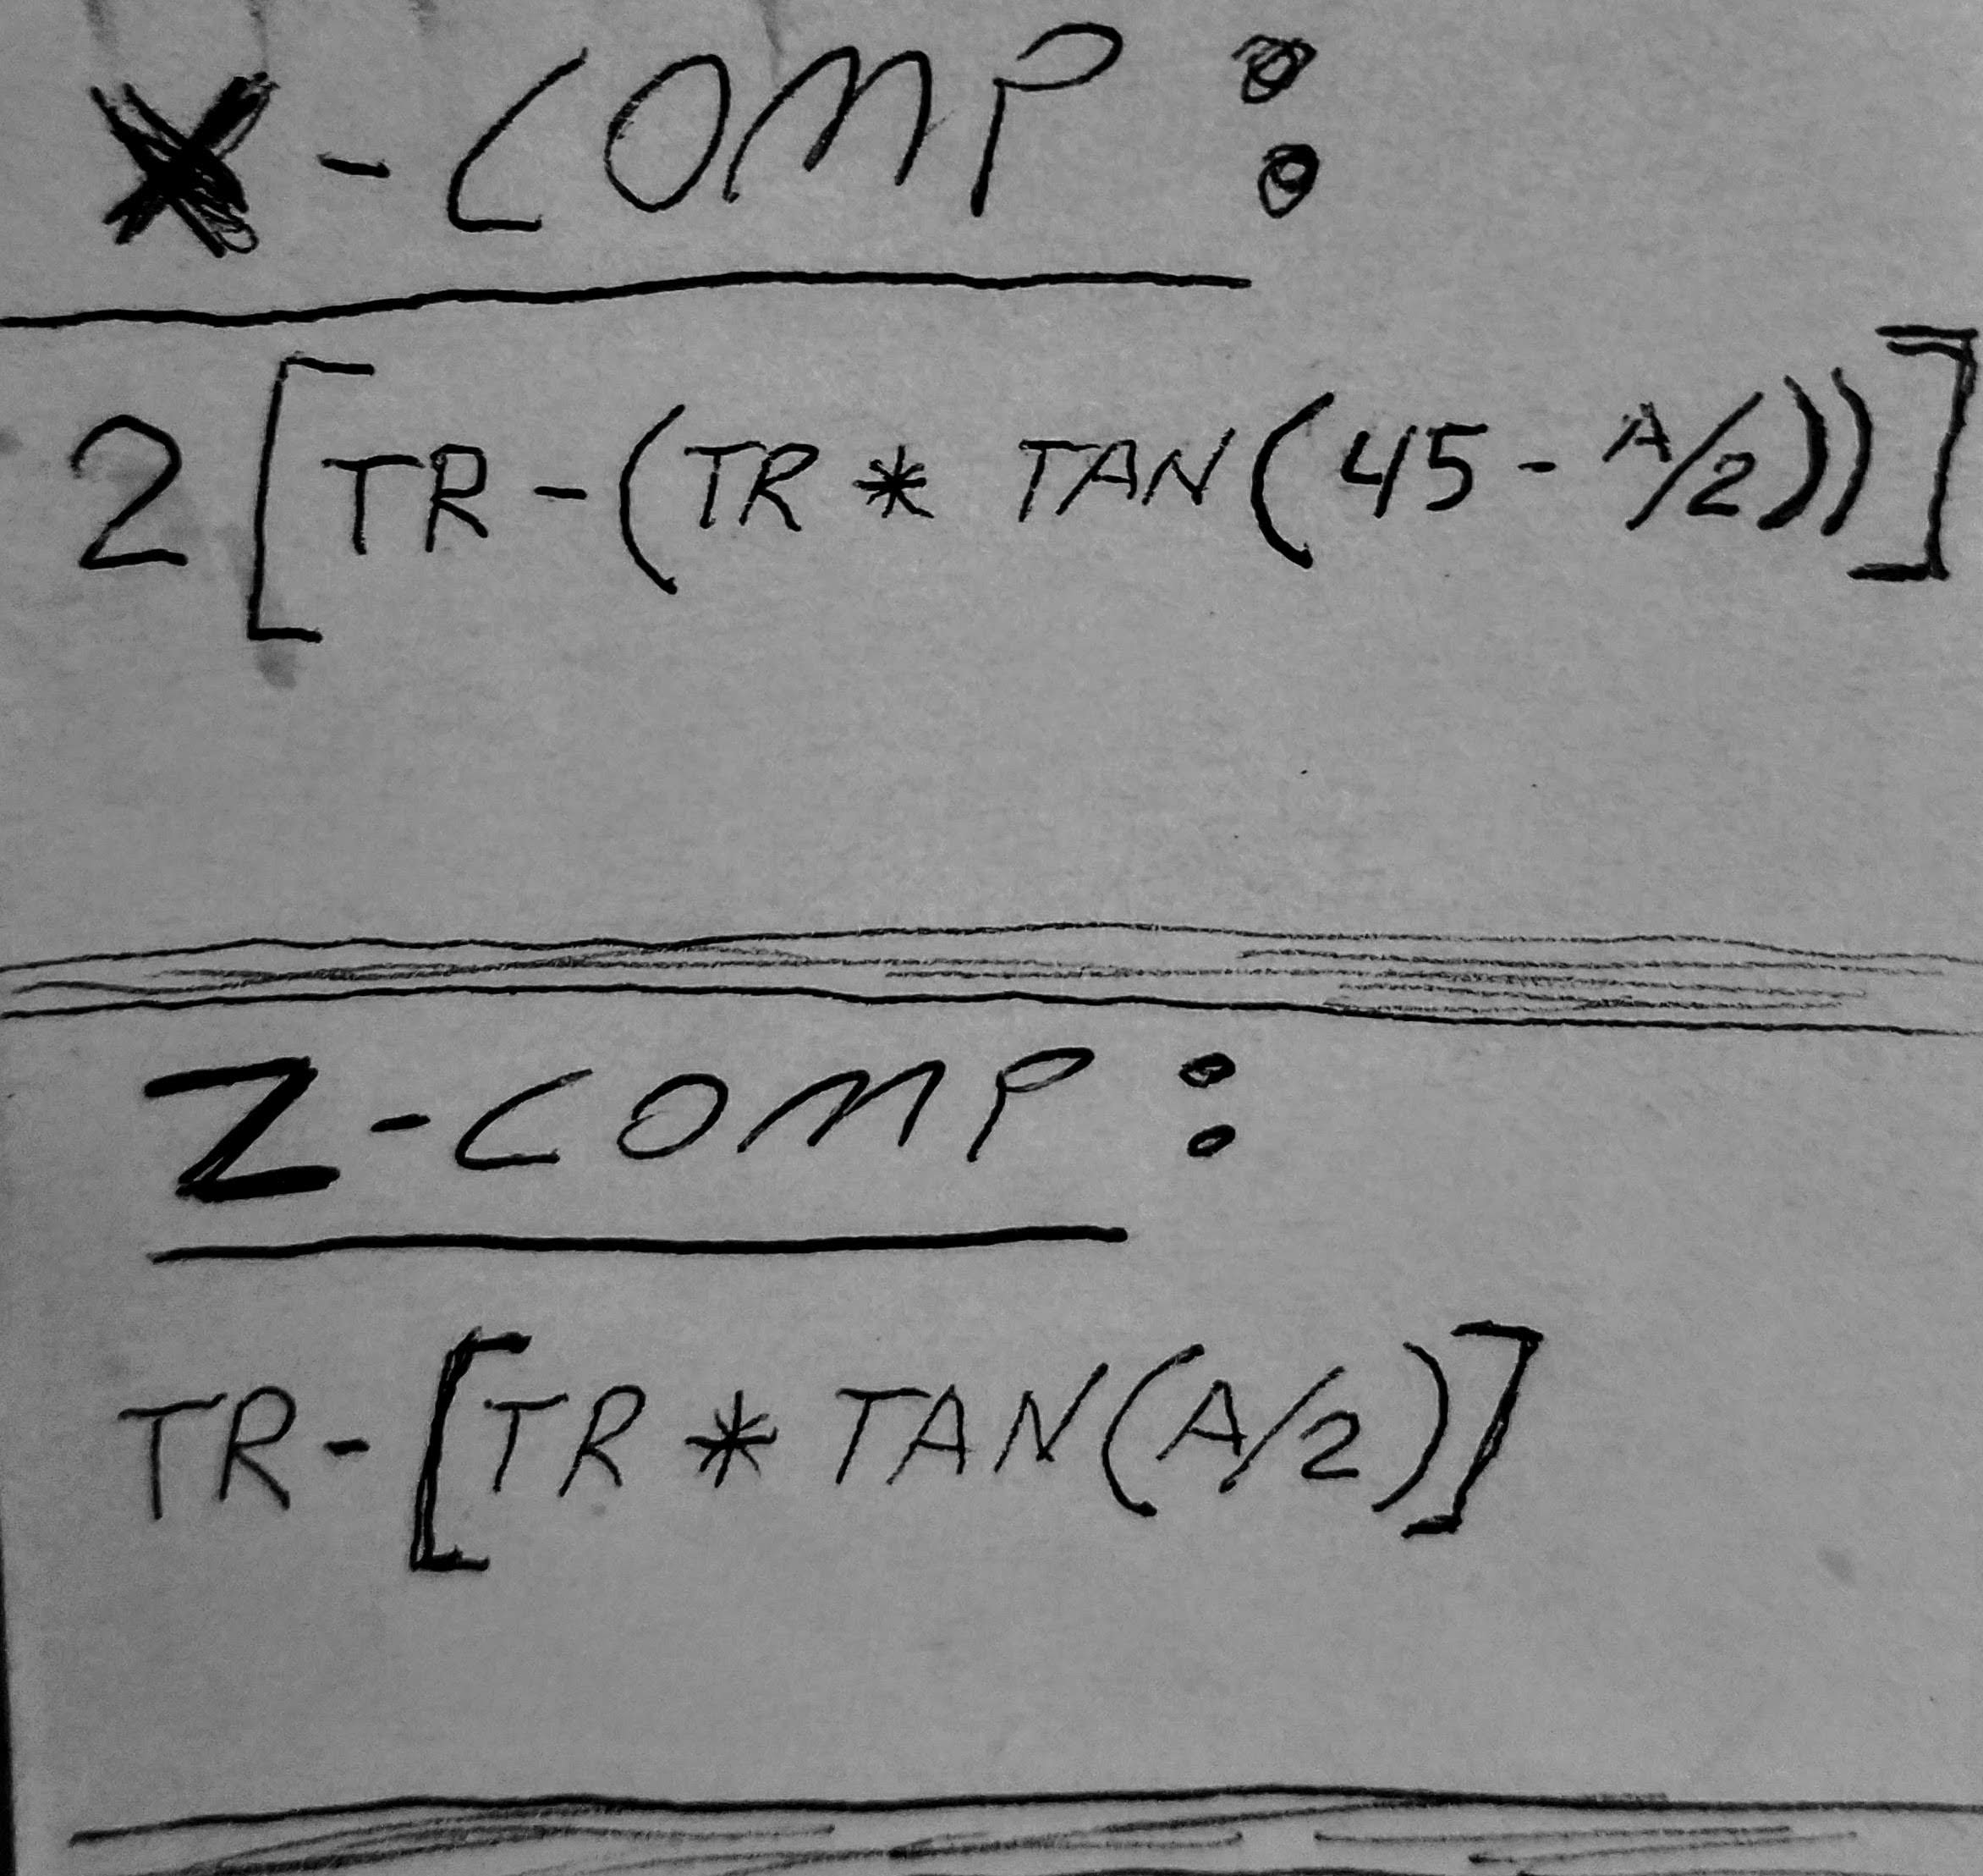 X-COMP:
2[TR-(TR* TAN(45-A/2))]
Z-COMP:
TR-[TR*TAN(A/2)]